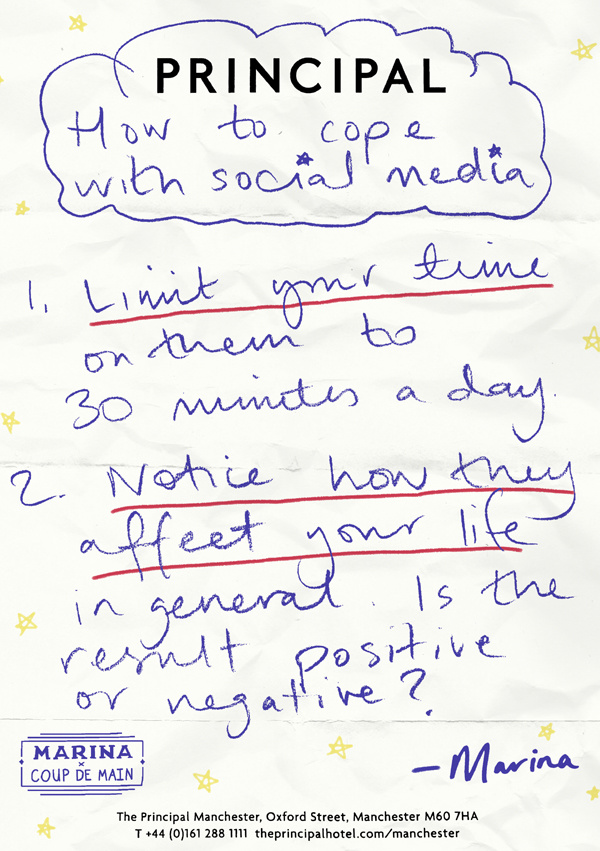 PRINCIPAL
How to cope
with social media
1. Limit your time
on them to
30 minutes a day.
2. Notice how they
affect your life
in general. Is the
result positive
or negative?
MARINA
×
COUP DE MAIN
– Marina
The Principal Manchester, Oxford Street, Manchester M60 7HA
T +44 (0)161 288 1111 theprincipalhotel.com/manchester